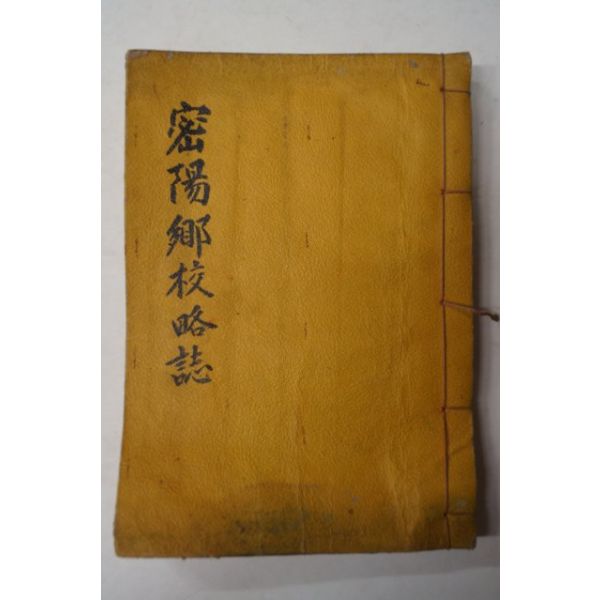 密陽鄉校略誌